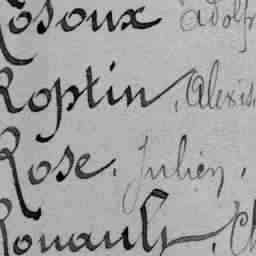 Rosoux Adolp
Roptin, Alexis
Rose, Julien,
Rouault, Ch